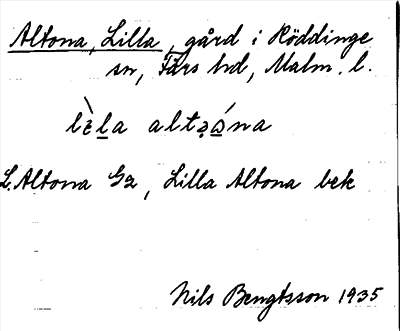 Altona, Lilla, gård i Röddinge
sn, Färs hd, Malm. l.
lèla altəóna
L. Altona Gz, Lilla Altona bek
Nils Bengtsson 1935